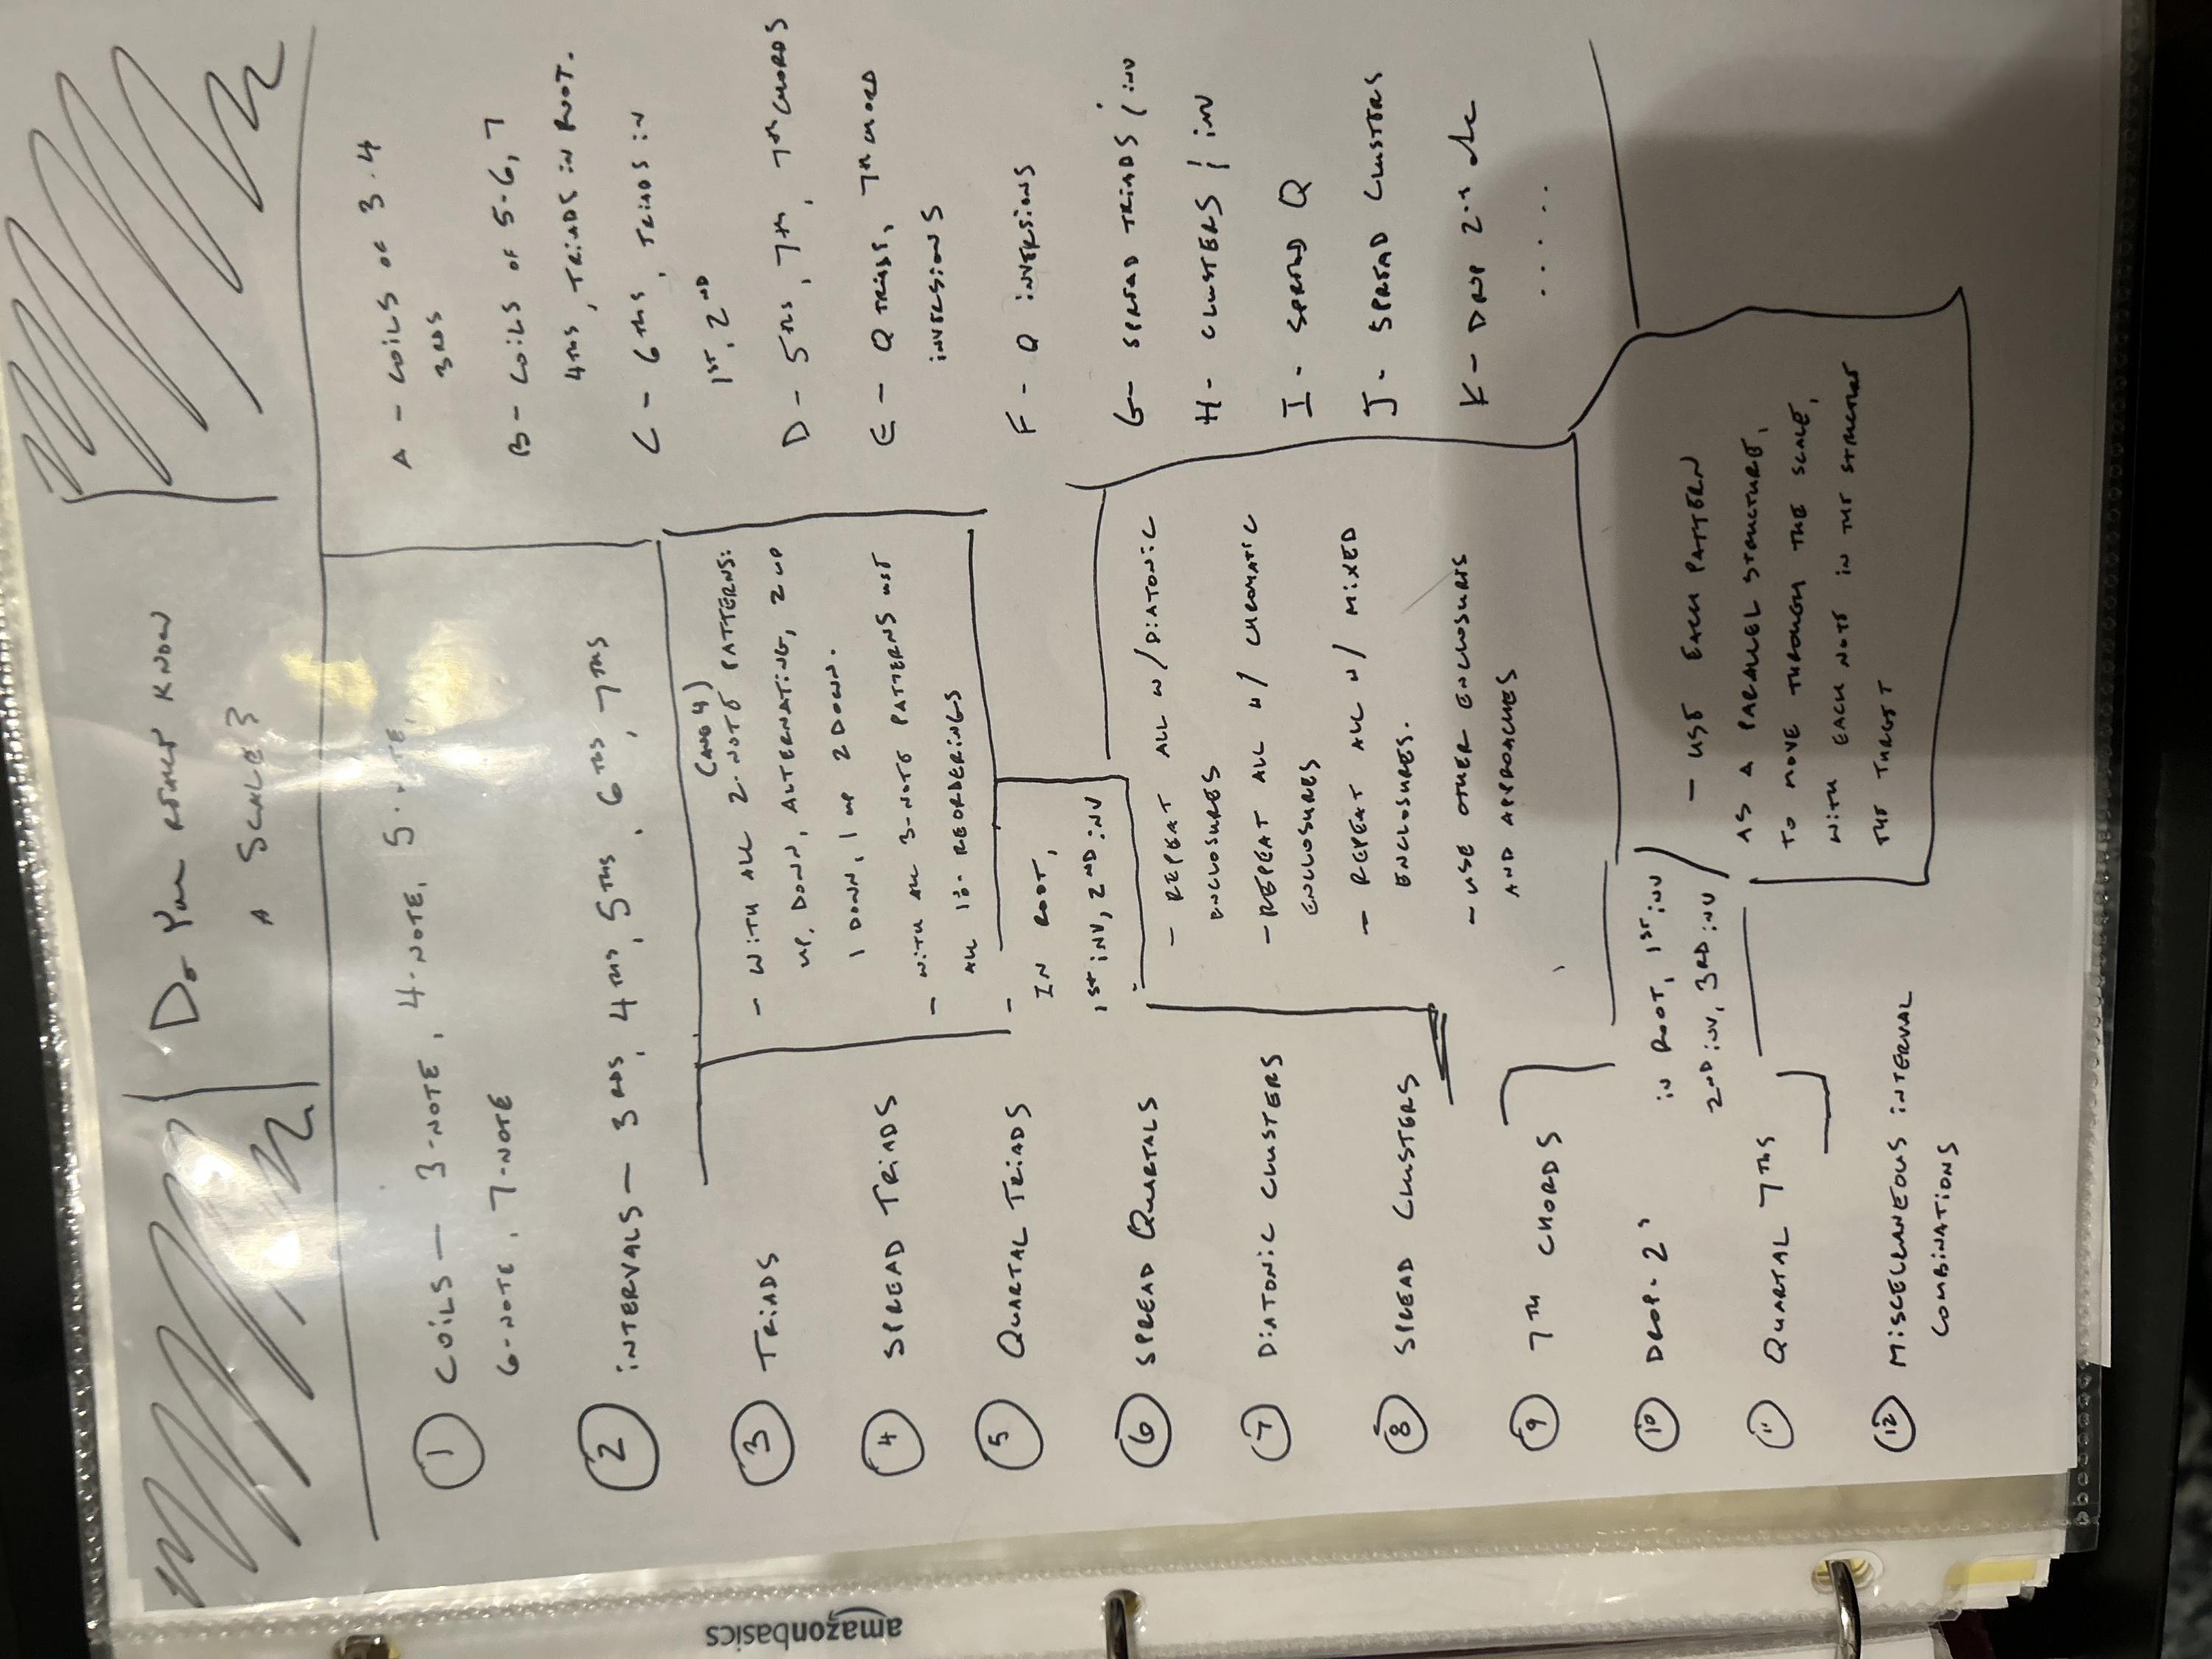 Do You REALLY KNOW
A SCALE?
1 COILS — 3-NOTE, 4-NOTE, 5-NOTE,
6-NOTE, 7-NOTE
2 INTERVALS — 3RDS, 4THS, 5THS, 6THS, 7THS
3 TRIADS
4 SPREAD TRIADS
5 QUARTAL TRIADS
6 SPREAD QUARTALS
7 DIATONIC CLUSTERS
8 SPREAD CLUSTERS
9 7TH CHORDS
10 DROP-2's
11 QUARTAL 7THS
12 MISCELLANEOUS INTERVAL
COMBINATIONS
(AND 4)
- WITH ALL 2-NOTE PATTERNS:
UP, DOWN, ALTERNATING, 2 UP
1 DOWN, 1 UP 2 DOWN.
- WITH ALL 3-NOTE PATTERNS
ALL REORDERINGS
- IN ROOT,
1ST INV, 2ND INV
- REPEAT ALL W/DIATONIC
ENCLOSURES
- REPEAT ALL W/ CHROMATIC
ENCLOSURES
- REPEAT ALL W/ MIXED
ENCLOSURES.
- USE OTHER ENCLOSURES
AND APPROACHES
IN ROOT, 1ST INV
2ND INV, 3RD INV
- USE EACH PATTERN
AS A PARALLEL STRUCTURE,
TO MOVE THROUGH THE SCALE,
WITH EACH NOTE IN THE STRUCTURE
THE TARGET
A - COILS OF 3-4
3RDS
B - COILS OF 5-6, 7
4THS, TRIADS IN ROOT.
C - 6THS, TRIADS IN
1ST, 2ND
D - 5THS, 7THS, 7TH CHORDS
E - Q TRIADS, 7TH CHORD
INVERSIONS
F - Q INVERSIONS
G - SPREAD TRIADS / INV
H - CLUSTERS / INV
I - SPREAD Q
J - SPREAD CLUSTERS
K - DROP 2's
.....
amazonbasics